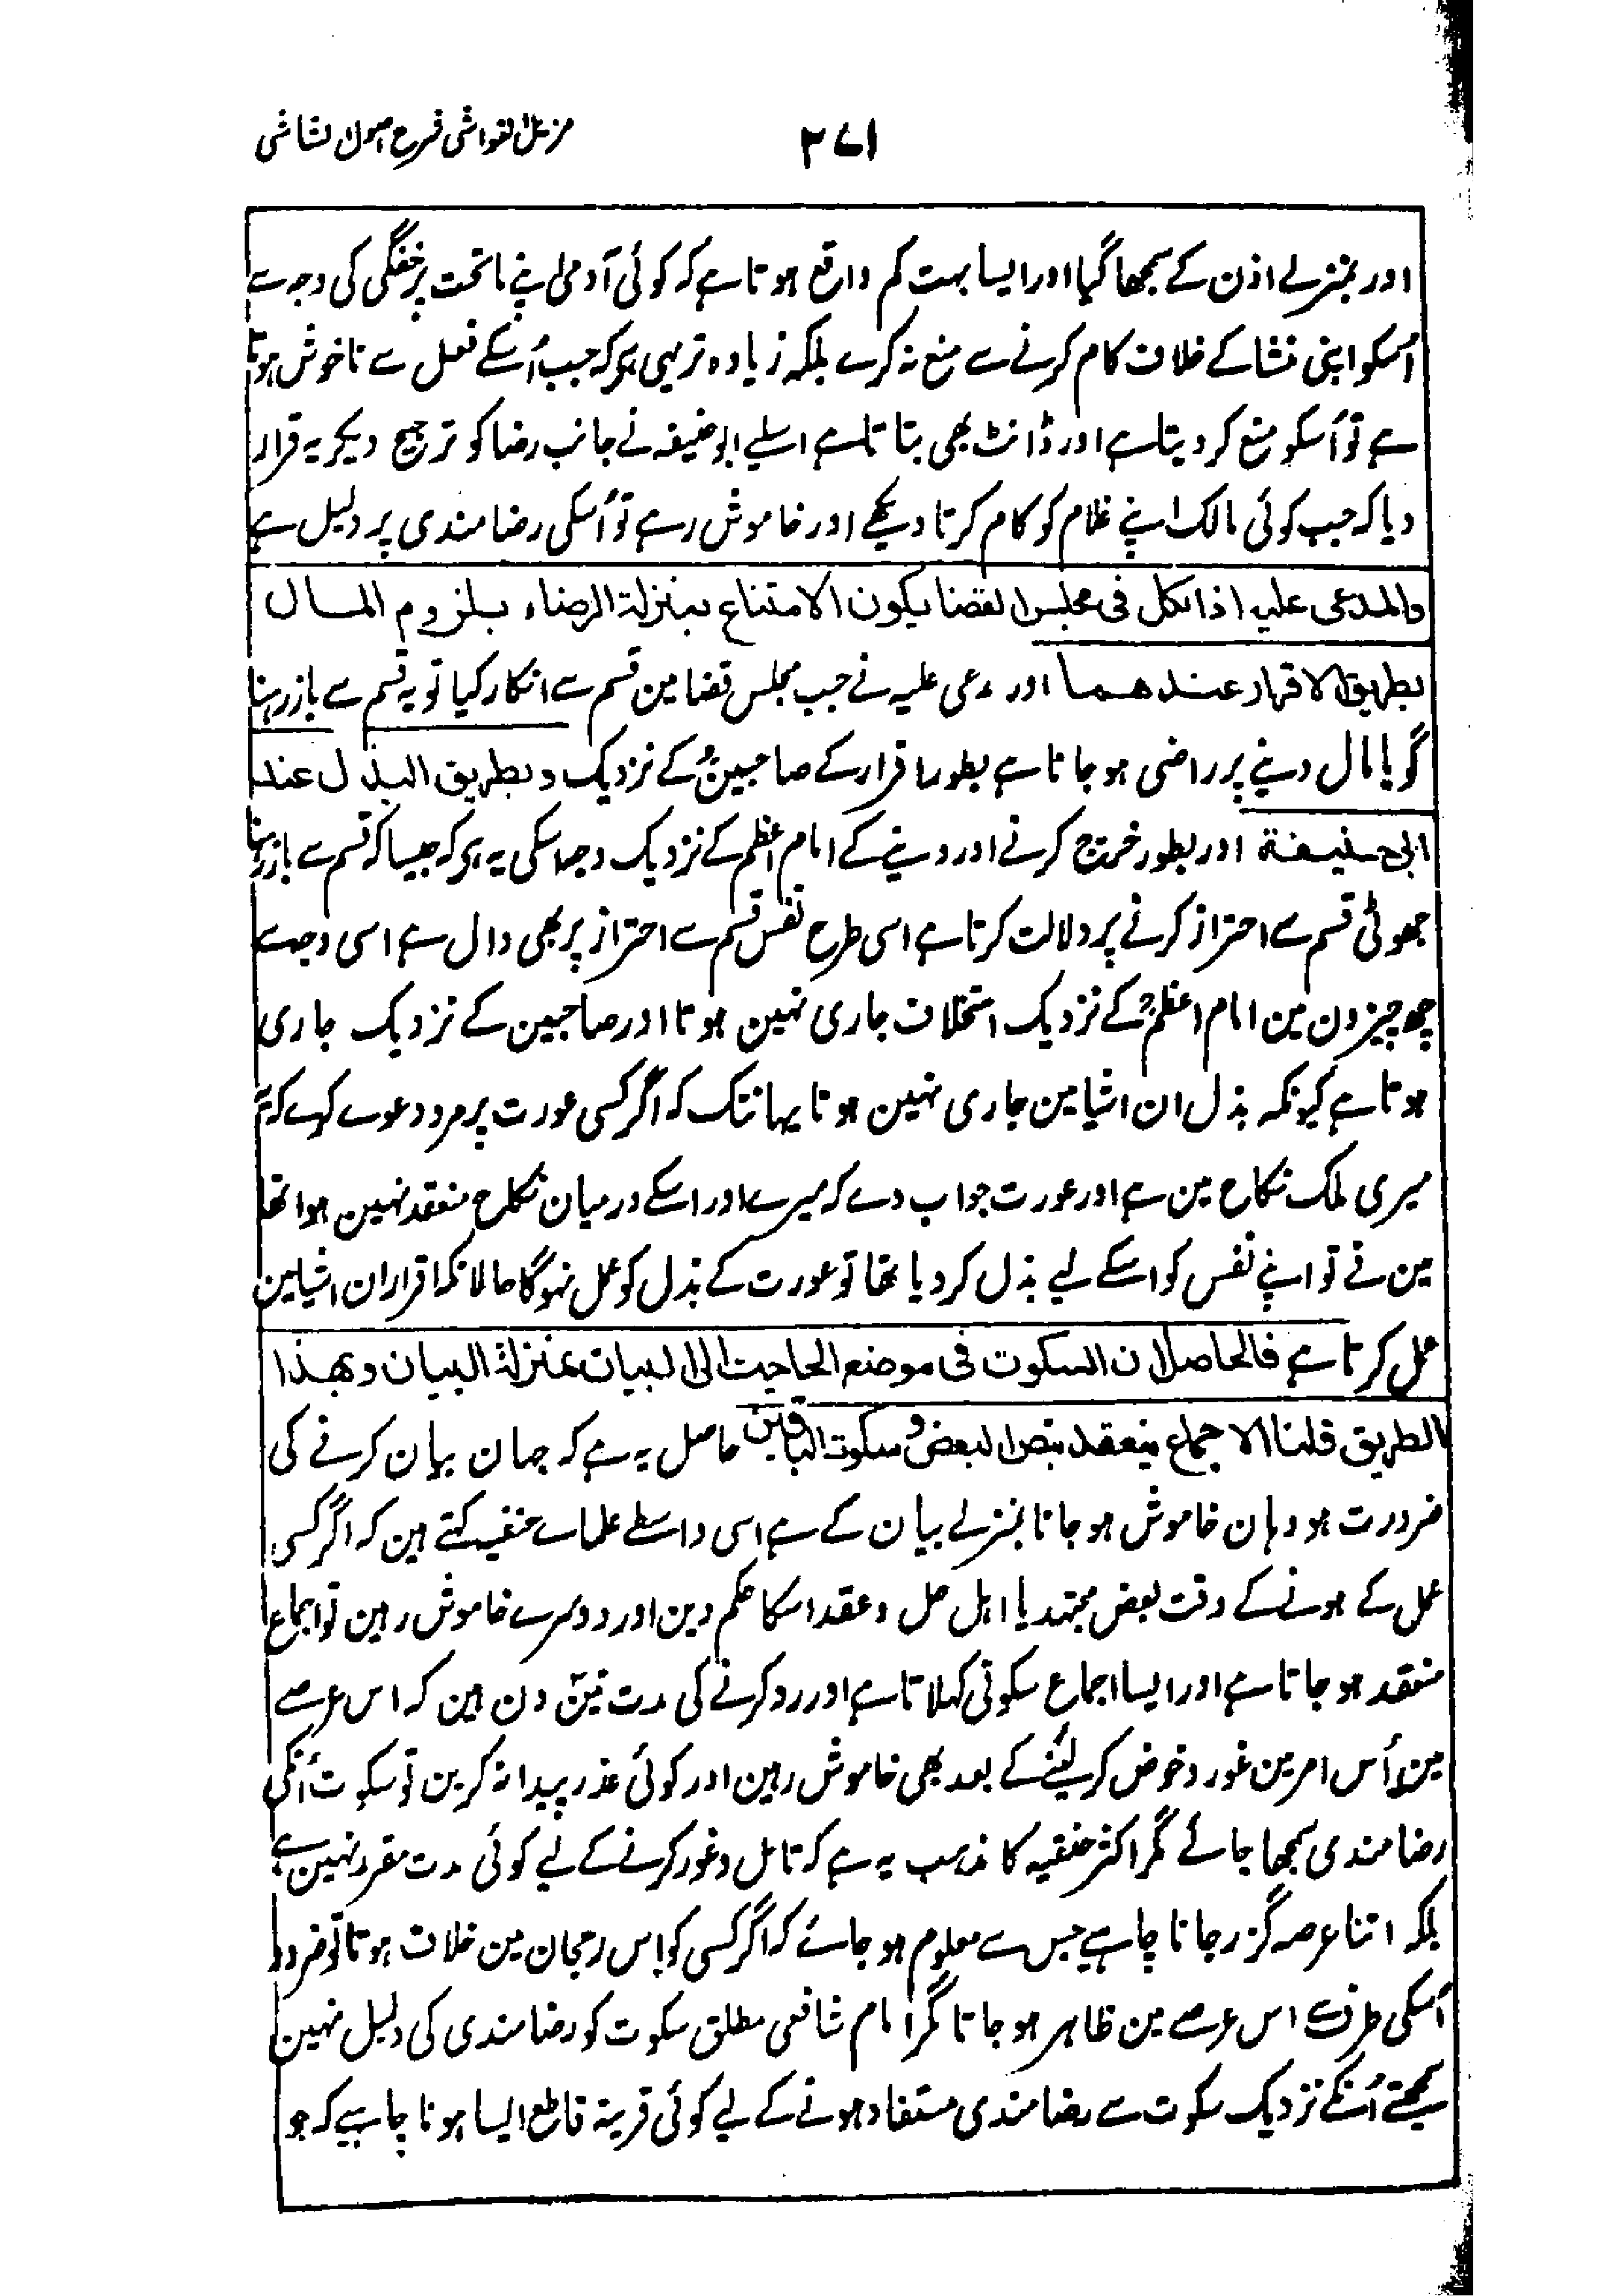 ۲۷۱ مزیل الغواشی شرح اصول الشاشی
اور بمنزلے اذن کے سمجھا گیا اور ایسا بہت کم واقع ہوتا ہے کہ کوئی آدمی اپنے ماتحت پر خفگی کی وجہ سے
اُسکو اپنی منشا کے خلاف کام کرنے سے منع نہ کرے بلکہ زیادہ تر یہی ہو کہ جب اُسکے فعل سے ناخوش ہوتا
ہے تو اُسکو منع کر دیتا ہے اور ڈانٹ بھی بتاتا ہے اسلیے ابو حنیفہ نے جانب رضا کو ترجیح دیکر یہ قرار
دیا کہ جب کوئی مالک اپنے غلام کو کام کرتا دیکھے اور خاموش رہے تو اُسکی رضامندی پر دلیل ہے
والمدعی علیہ اذا نکل فی مجلس القضا یکون الامتناع بمنزلۃ الرضاء بلزوم المال
بطریق الاقرار عندھما اور مدعی علیہ نے جب مجلس قضا مین قسم سے انکار کیا تو یہ قسم سے باز رہنا
گویا مال دینے پر راضی ہو جانا ہے بطور اقرار کے صاحبینؒ کے نزدیک وبطریق البذل عند
ابی حنیفۃ اور بطور خرچ کرنے اور دینے کے امام اعظم کے نزدیک وجہ اسکی یہ ہو کہ جیسا کہ قسم سے باز رہنا
جھوٹی قسم سے احتراز کرنے پر دلالت کرتا ہے اسی طرح نفس قسم سے احتراز پر بھی دال ہے اسی وجہ سے
چھ چیزون مین امام اعظمؒ کے نزدیک استحلاف جاری نہین ہوتا اور صاحبین کے نزدیک جاری
ہوتا ہے کیونکہ بذل ان اشیا مین جاری نہین ہوتا یہانتک کہ اگر کسی عورت پر مرد دعوے کرے کہ یہ
میری ملک نکاح مین ہے اور عورت جواب دے کہ میرے اور اسکے درمیان نکاح منعقد نہین ہوا تھا
مین نے تو اپنے نفس کو اسکے لیے بذل کر دیا تھا تو عورت کے بذل کو عمل نہوگا حالانکہ اقرار ان اشیا مین
عمل کرتا ہے فالحاصل ان السکوت فی موضع الحاجۃ الی البیان بمنزلۃ البیان وبھذا
الطریق قلنا الاجماع ینعقد بنص البعض وسکوت الباقین حاصل یہ ہے کہ جہان بیان کرنے کی
ضرورت ہو وہان خاموش ہو جانا بمنزلے بیان کے ہے اسی واسطے علماے حنفیہ کہتے ہین کہ اگر کسی
عمل کے ہونے کے وقت بعض مجتہد یا اہل حل وعقد اسکا حکم دین اور دوسرے خاموش رہین تو اجماع
منعقد ہو جاتا ہے اور ایسا اجماع سکوتی کہلاتا ہے اور رد کرنے کی مدت تین دن ہین کہ اس عرصے
مین اُس امر مین غور وخوض کر لینے کے بعد بھی خاموش رہین اور کوئی عذر پیدا نہ کرین تو سکوت اُنکی
رضامندی سمجھا جائے مگر اکثر حنفیہ کا مذہب یہ ہے کہ تامل وغور کرنے کے لیے کوئی مدت مقرر نہین ہے
بلکہ اتنا عرصہ گزر جانا چاہیے جس سے معلوم ہو جائے کہ اگر کسی کو اس رجحان مین خلاف ہوتا تو ضرور
اُسکی طرف سے اس عرصے مین ظاہر ہو جاتا مگر امام شافعی مطلق سکوت کو رضامندی کی دلیل نہین
سمجھتے اُنکے نزدیک سکوت سے رضامندی مستفاد ہونے کے لیے کوئی قرینہ قاطع ایسا ہونا چاہیے کہ جو